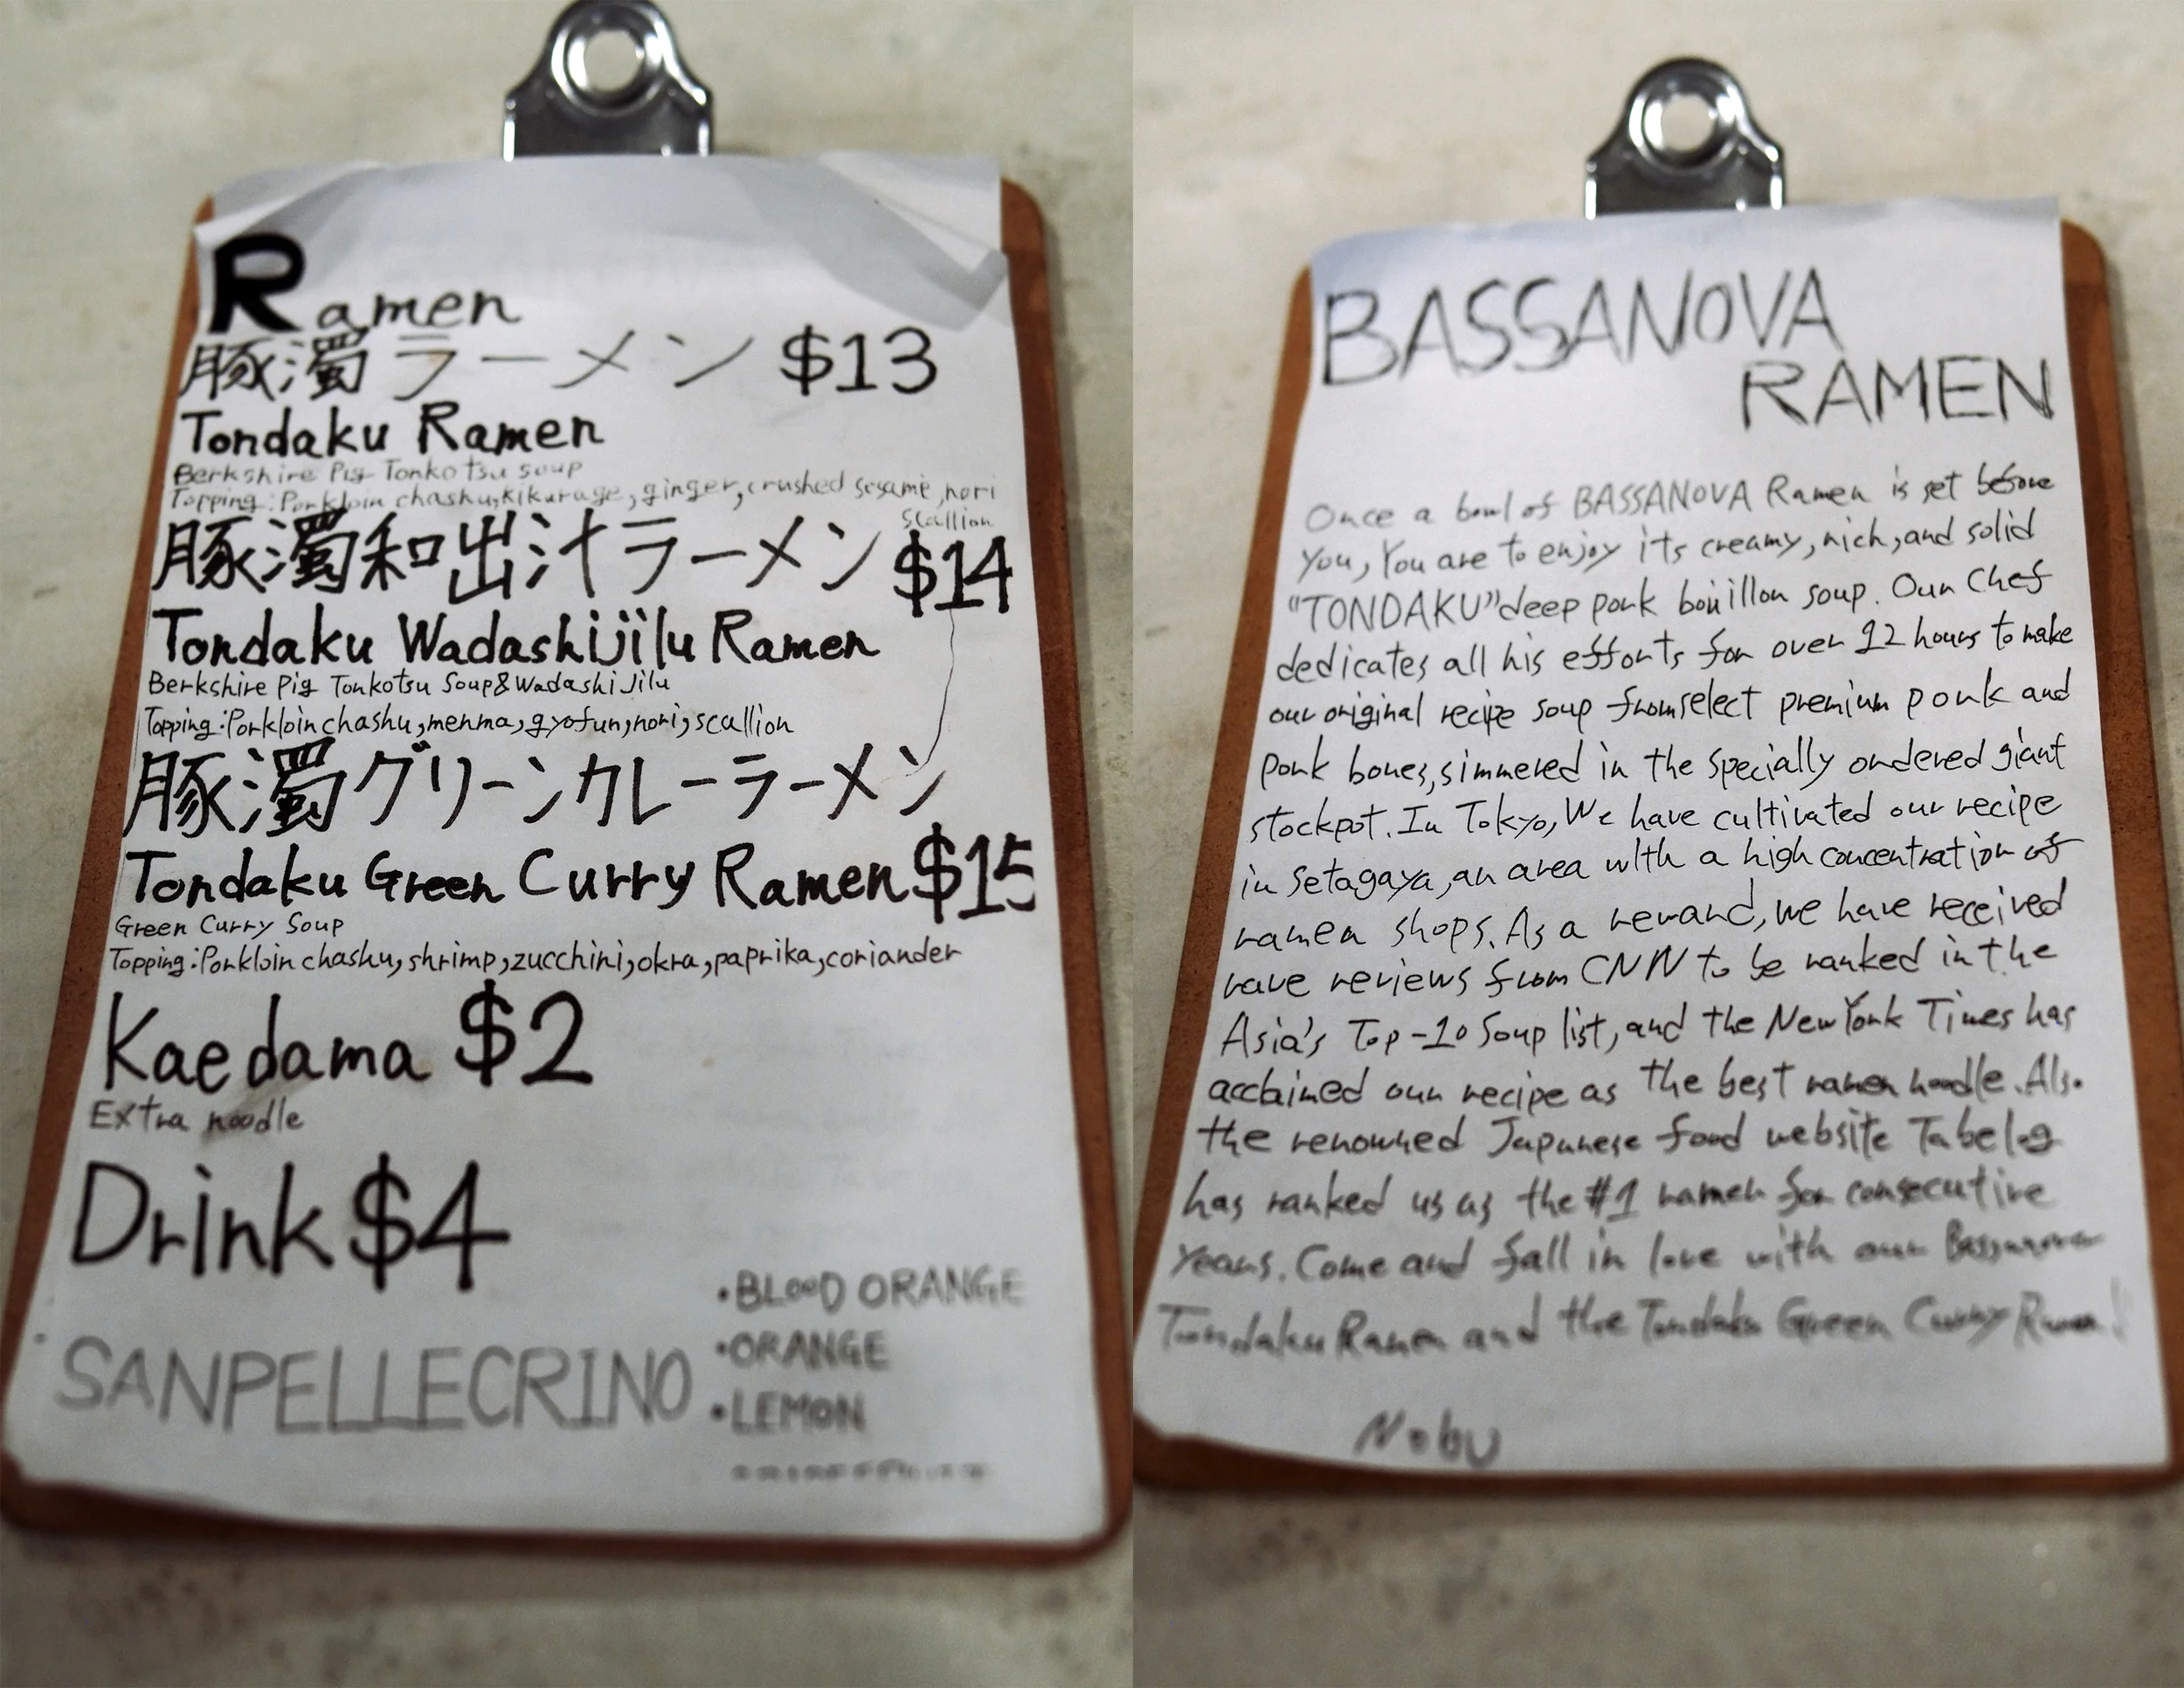 Ramen
豚濁ラーメン $13
Tondaku Ramen
Berkshire Pig Tonkotsu soup
Topping:Porkloin chashu,kikurage,ginger,crushed sesame,nori
scallion
豚濁和出汁ラーメン $14
Tondaku Wadashijilu Ramen
Berkshire Pig Tonkotsu Soup&Wadashi Jilu
Topping:Porkloin chashu,menma,gyofun,nori,scallion
豚濁グリーンカレーラーメン
Tondaku Green Curry Ramen $15
Green Curry Soup
Topping:Porkloin chashu,shrimp,zucchini,okra,paprika,coriander
Kaedama $2
Extra noodle
Drink $4
SANPELLECRINO
・BLOOD ORANGE
・ORANGE
・LEMON
BASSANOVA
RAMEN
Once a bowl of BASSANOVA Ramen is set before
you, You are to enjoy its creamy, rich, and solid
"TONDAKU" deep pork bouillon soup. Our Chef
dedicates all his efforts for over 12 hours to make
our original recipe soup from select premium pork and
pork bones, simmered in the specially ordered giant
stockpot. In Tokyo, We have cultivated our recipe
in Setagaya, an area with a high concentration of
ramen shops. As a reward, we have received
rave reviews from CNN to be ranked in the
Asia's Top-10 Soup list, and the New York Times has
acclaimed our recipe as the best ramen noodle. Also
the renowned Japanese food website Tabelog
has ranked us as the #1 ramen for consecutive
years. Come and fall in love with our Bassanova
Tondaku Ramen and the Tondaku Green Curry Ramen!
Nobu